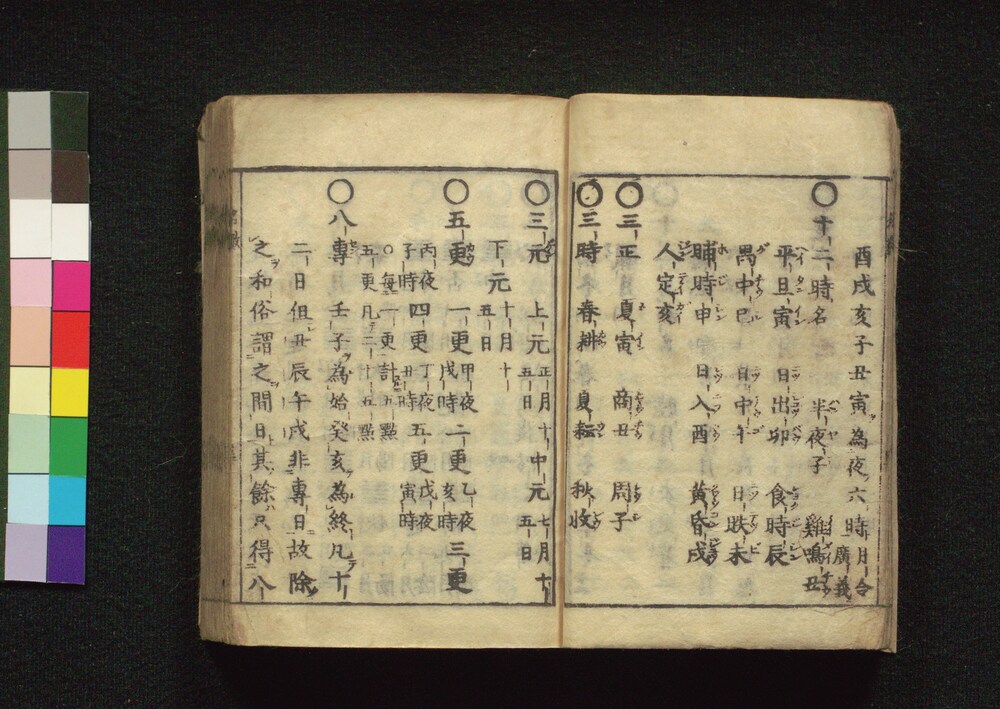 酉戌亥子丑寅為夜六時 月令廣義
〇十二時名 半夜子 雞鳴丑
平旦寅 日出卯 食時辰
禺中巳 日中午 日昳未
晡時申 日入酉 黄昏戌
人定亥
〇三正 夏寅 商丑 周子
〇三時 春耕 夏耘 秋收
〇三元 上元 正月十五日 中元 七月十五日
下元 十月十五日
〇五更 一更 甲夜戌時 二更 乙夜亥時 三更
丙夜子時 四更 丁夜丑時 五更 戊夜寅時
〇毎一更計五點
五更凡二十五點
〇八專 壬子為始癸亥為終凡十
二日但丑辰午戌非專日故除
之和俗謂之間日其餘只得八